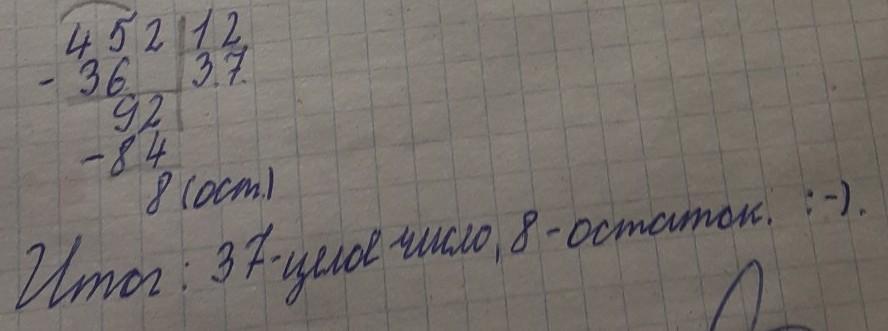 452 | 12
- 36 | 37
92
- 84
8 (ост.)
Итог: 37-целое число, 8-остаток. :-).